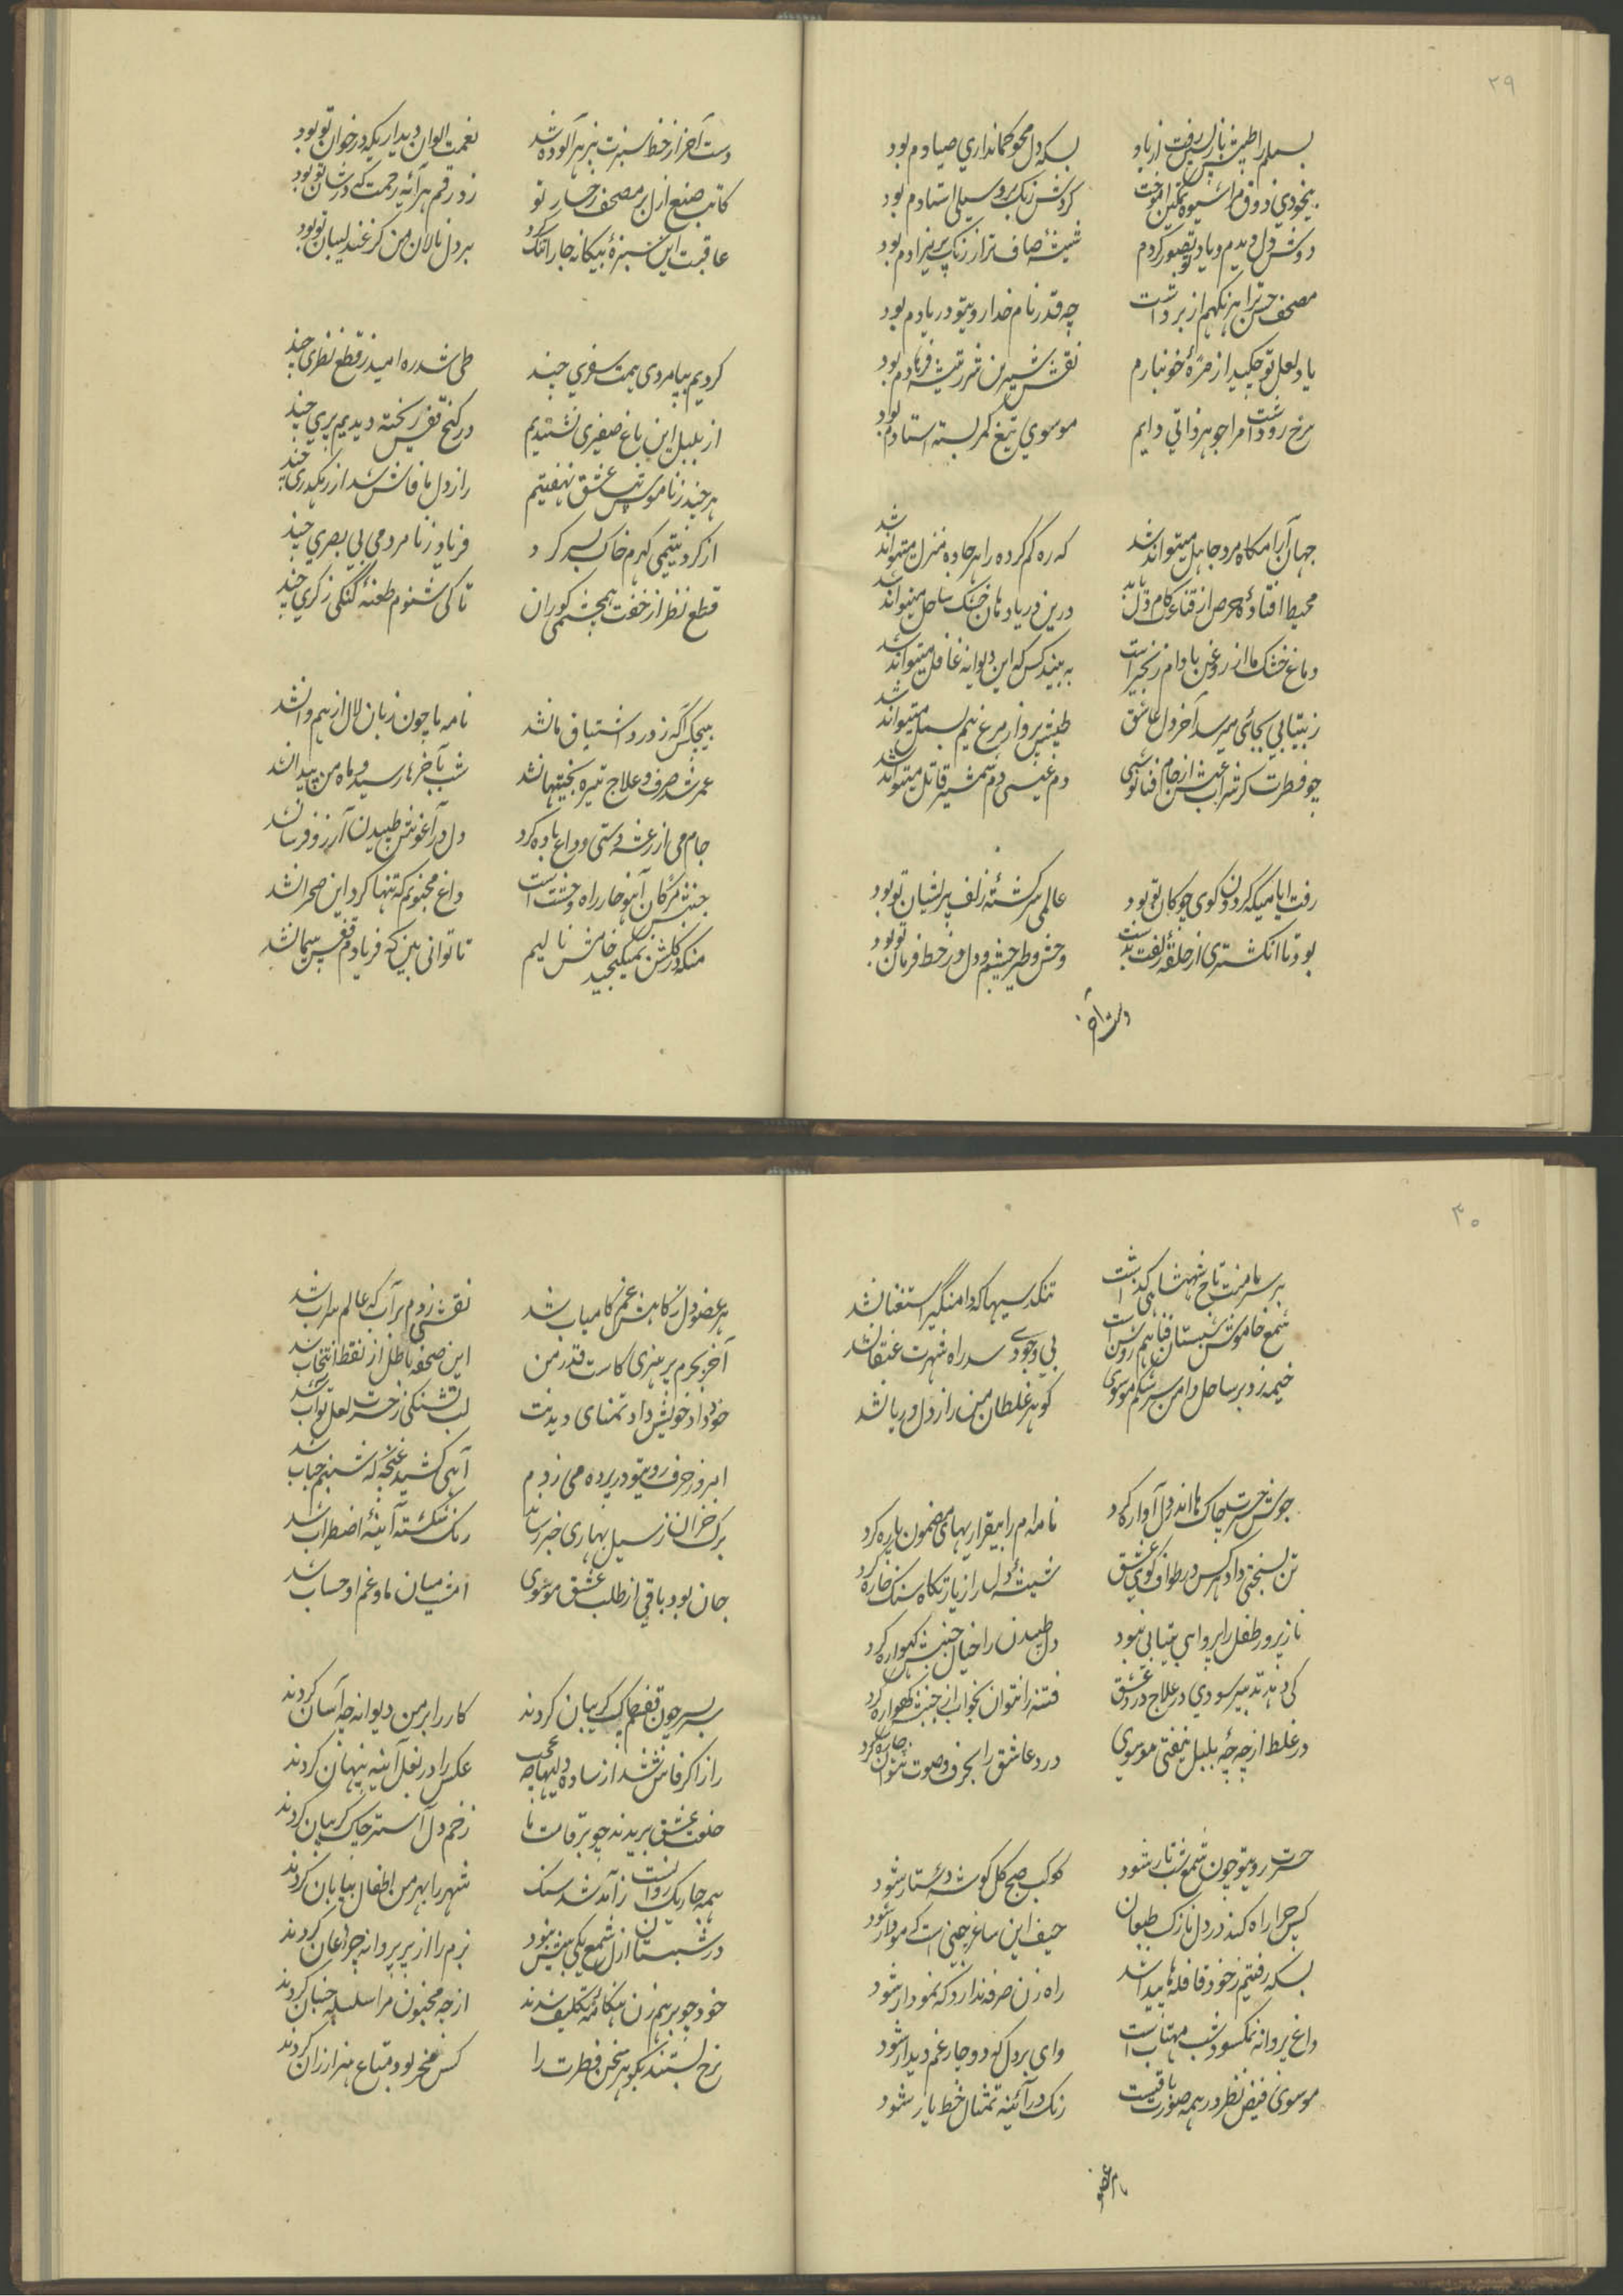 ۲۹
بسملم را طپش ناز پس رفت از یاد
بسکه دل محو کمانداری صیادم بود
بیخودی ذوق مرا شیوه تمکین آموخت
گردش رنگ برو سیلی استادم بود
دوش دل دیدم و یاد تو تصور کردم
شیشه صاف تر از رنگ پریزادم بود
مصحف حسن ترا هر نگهم از بر داشت
چه قدر نام خدا رویتو در یادم بود
یاد لعل تو چکید از مژه خونبارم
نقش شیرین شرر تیشه فرهادم بود
سرخ رو داشت مرا جوهر ذاتی دایم
موسوی تیغ کمر بسته استادم بود
جهان آرامگاه مرد جاهل میتواند شد
که ره گم کرده را هر جاده منزل میتواند شد
محیط افتاده حرص از قناعت کام دل یابد
درین دریا دهان خشک ساحل میتواند شد
دماغ خشک ما از روغن بادام زنجیر است
به بیند کس که این دیوانه غافل میتواند شد
ز بیتابی بجائی میرسد آخر دل عاشق
طپش پرواز مرغ نیم بسمل میتواند شد
چو فطرت کر شراب عیش از جام فنا نوشی
دم عیسی دم شمشیر قاتل میتواند شد
رفت ایامیکه گردون گوی چوگان تو بود
عالمی سرگشته زلف پریشان تو بود
بود تا انگشتری از حلقه زلفت بدست
وحش و طیر چشم و دل در خط فرمان تو بود
دست آخر
دست آخر از خط سبزت بزهر آلوده شد
نعمت الوان دیداریکه در خوان تو بود
کاتب صنع ازل بر مصحف رخسار تو
زد رقم هر آیه رحمت که در شان تو بود
عاقبت این سبزه بیگانه جا را تنگ کرد
بر دل نالان من کز عندلیبان تو بود
کردیم بپامردی همت سفری چند
طی شد ره امید ز قطع نظری چند
از بلبل این باغ صفیری نشنیدیم
در کنج قفس ریخته دیدیم پری چند
هر چند ز ناموس تب عشق نهفتیم
راز دل ما فاش شد از رهگذری چند
از گرد یتیمی گهرم خاک بسر کرد
فریاد ز نامردمی بی بصری چند
قطع نظر از خفت همچشمی کوران
تا کی شنوم طعنه گنگی ز کری چند
هیچکس آگه ز درد اشتیاق ما نشد
نامه ما چون زبان لال از هم وا نشد
عمر شد صرف و علاج تیره بختیها نشد
شب بآخرها رسید و ماه من پیدا نشد
جام می از رعشه دستی وداع باده کرد
دل در آغوش طپیدن آرزو فرسا نشد
جنبش مژگان آهو خار راه وحشت است
داغ مجنونم که تنها کرد این صحرا نشد
منکه در گلشن نمیگنجید خامش نالیم
ناتوانی بین که فریادم قفس پیما نشد
۳۰
بر سر ما منت تاج شهنشاهی گذشت
تنگدسیها که دامنگیر استغنا نشد
شمع خاموش شبستان فنا هم روشن است
بی وجودی سد راه شهرت عنقا نشد
خیمه زد بر ساحل دامن سرشکم موسوی
گوهر غلطان من راز دل دریا نشد
جوش حسرت چاک ها اندر دل آواره کرد
نامه ام را بیقراریهای مضمون پاره کرد
تن بسختی داد هر کس در طواف کوی عشق
شیشه دل را زیارتگاه سنگ خاره کرد
نازپرور طفل را پروای بیتابی نبود
دل طپیدن را خیال جنبش گهواره کرد
کی دهد تدبیر سودی در علاج درد عشق
فتنه را نتوان بخواب از جنبش گهواره کرد
در غلط از چهچه بلبل نیفتی موسوی
درد عاشق را بحرف و صوت نتوان چاره کرد
حسرت رویتو چون شمع شب تار شود
کوکب صبح گل گوشه دستار شود
کس چرا راه کند در دل نازک طبعان
حیف این ساغر چینی است که مودار شود
بسکه رفتیم ز خود قافله ها پیدا شد
راه زن صرفه ندارد که نمودار شود
داغ پروانه نمکسود شب مهتابست
وای بر دل که دوچار غم دیدار شود
موسوی فیض نظر در همه صورت باقیست
زنگ در آئینه تمثال خط یار شود
هر عضو
هر عضو دل ز کاهش غم کامیاب شد
نقشی زدم بر آب که عالم سراب شد
آخر بجرم پر هنری کاست قدر من
این صفحه باطل از نقط انتخاب شد
خود داد خویش داد تمنای دیدنت
لب تشنگی ز حسرت لعل تو آب شد
امروز حرف رویتو در پرده می زدم
آهی کشید غنچه که شبنم حباب شد
برگ خزان ز سیل بهاری خبر رساند
رنگ شکسته آینه اضطراب شد
جان بود باقی از طلب عشق موسوی
امشب میان ما و غم او حساب شد
بسر چون قفسم چاک گریبان کردند
کار را بر من دیوانه چه آسان کردند
راز اگر فاش نشد از ساده دلیها چه عجب
عکس را در بغل آینه پنهان کردند
خلعت عشق بریدند چو بر قامت ما
زخم دل آستر چاک گریبان کردند
همه جا ریگ روانست ز آمد شد سنگ
شهر را بهر من اطفال بیابان کردند
در شبستان ازل شمع یکی بیش نبود
بزم را از پر پروانه چراغان کردند
خود چو برهم زن هنگامه تکلیف شدند
از چه مجنون مرا سلسله جنبان کردند
نرخ بستند بگوهر سخن فطرت را
کس مخر بود متاع هنر ارزان کردند